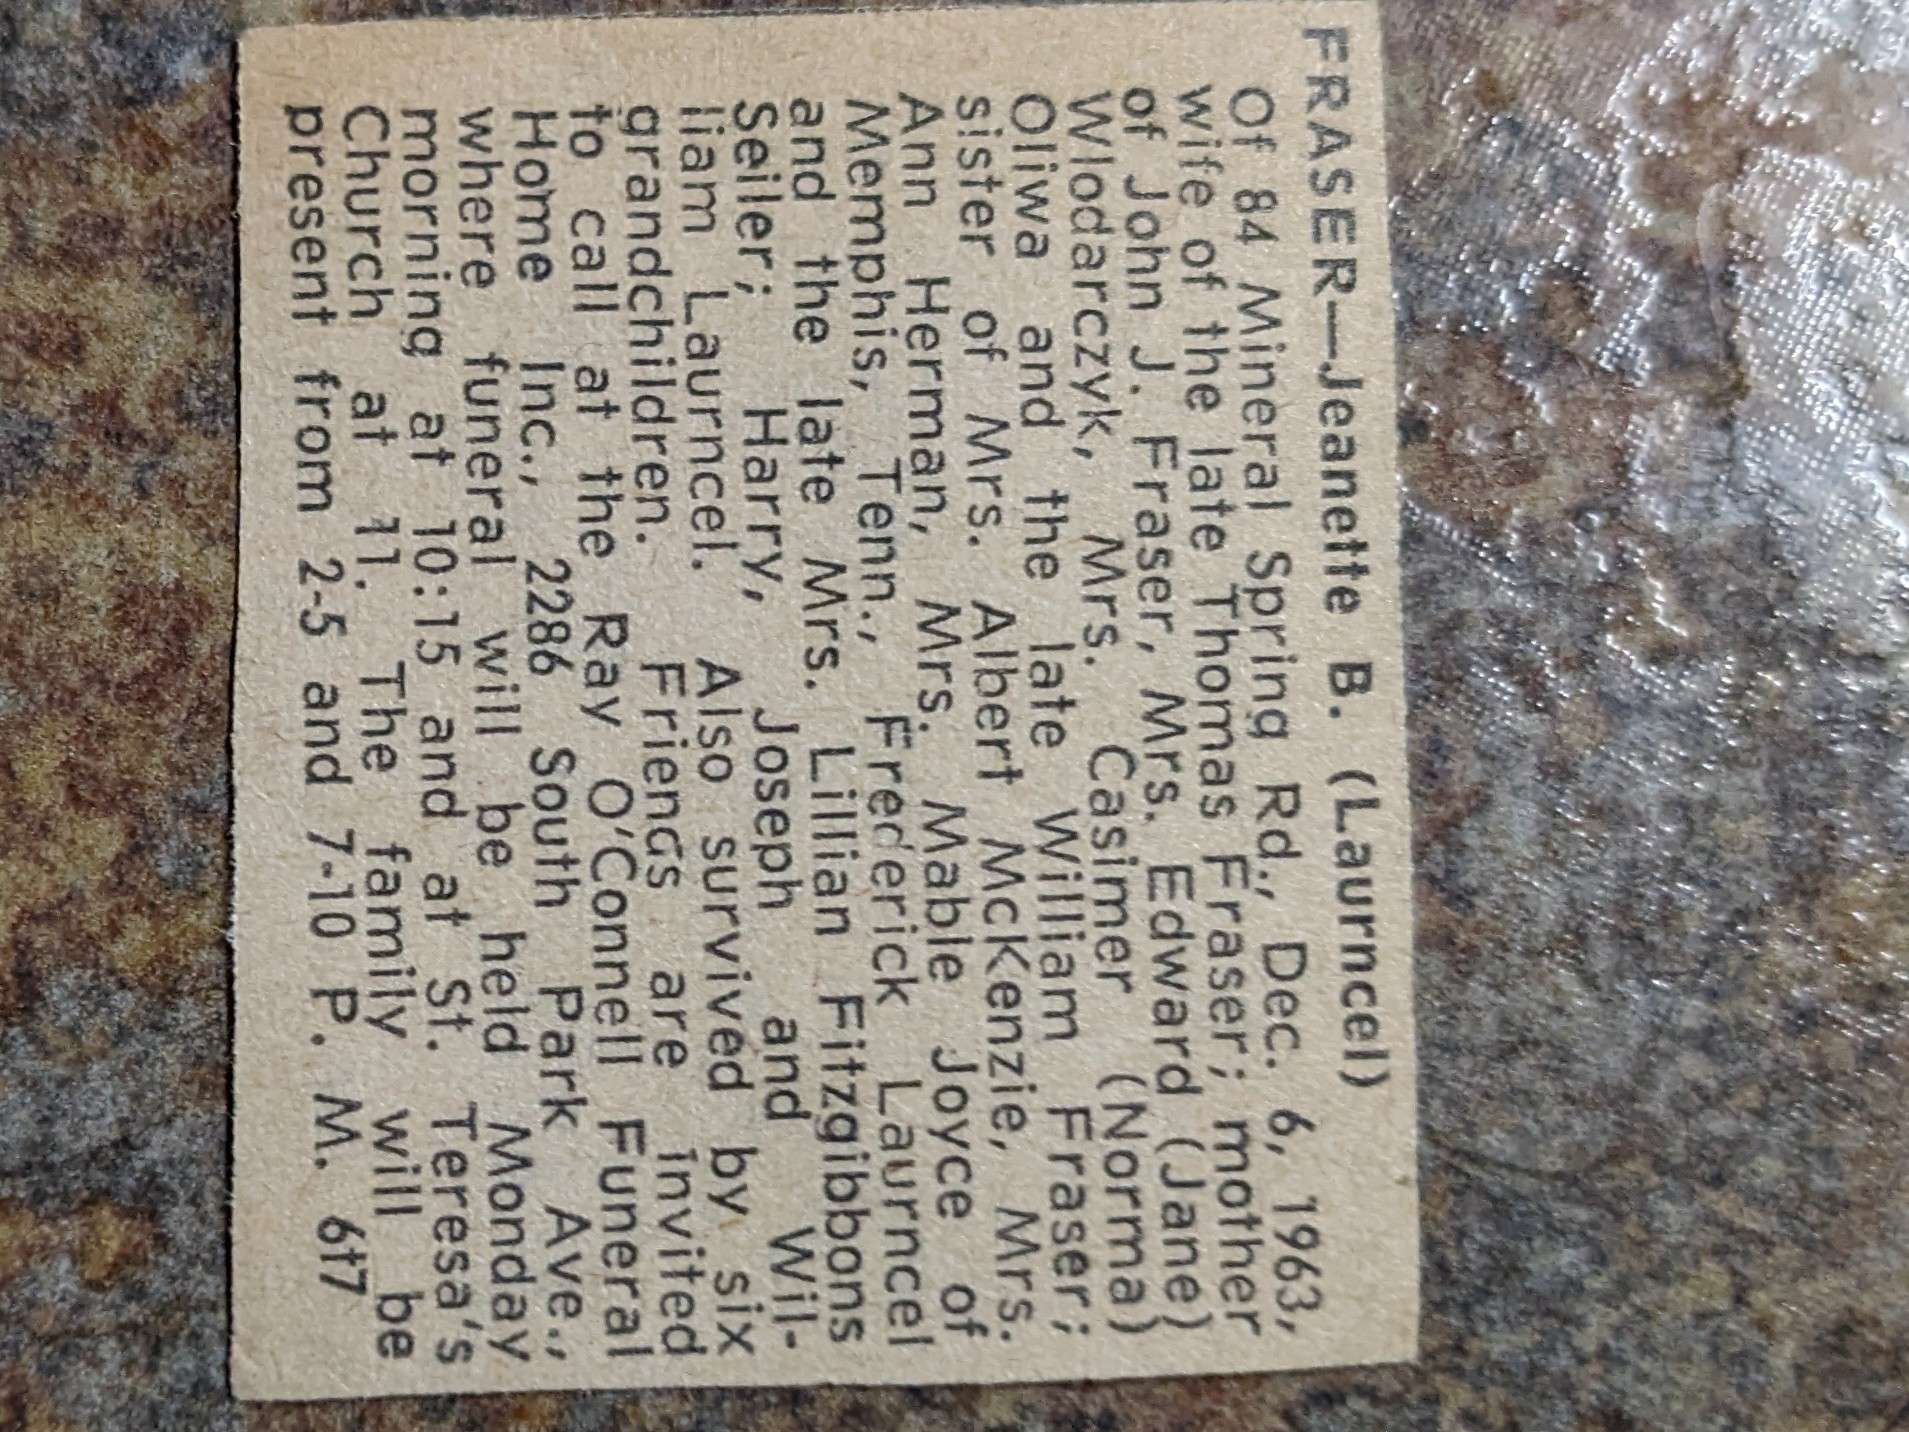 FRASER—Jeanette B. (Laurncel)
Of 84 Mineral Spring Rd., Dec. 6, 1963,
wife of the late Thomas Fraser; mother
of John J. Fraser, Mrs. Edward (Jane)
Wlodarczyk, Mrs. Casimer (Norma)
Oliwa and the late William Fraser;
sister of Mrs. Albert McKenzie, Mrs.
Ann Herman, Mrs. Mable Joyce of
Memphis, Tenn., Frederick Laurncel
and the late Mrs. Lillian Fitzgibbons
Seiler; Harry, Joseph and Wil-
liam Laurncel. Also survived by six
grandchildren. Friends are invited
to call at the Ray O'Connell Funeral
Home Inc., 2286 South Park Ave.,
where funeral will be held Monday
morning at 10:15 and at St. Teresa's
Church at 11. The family will be
present from 2-5 and 7-10 P. M. 6t7